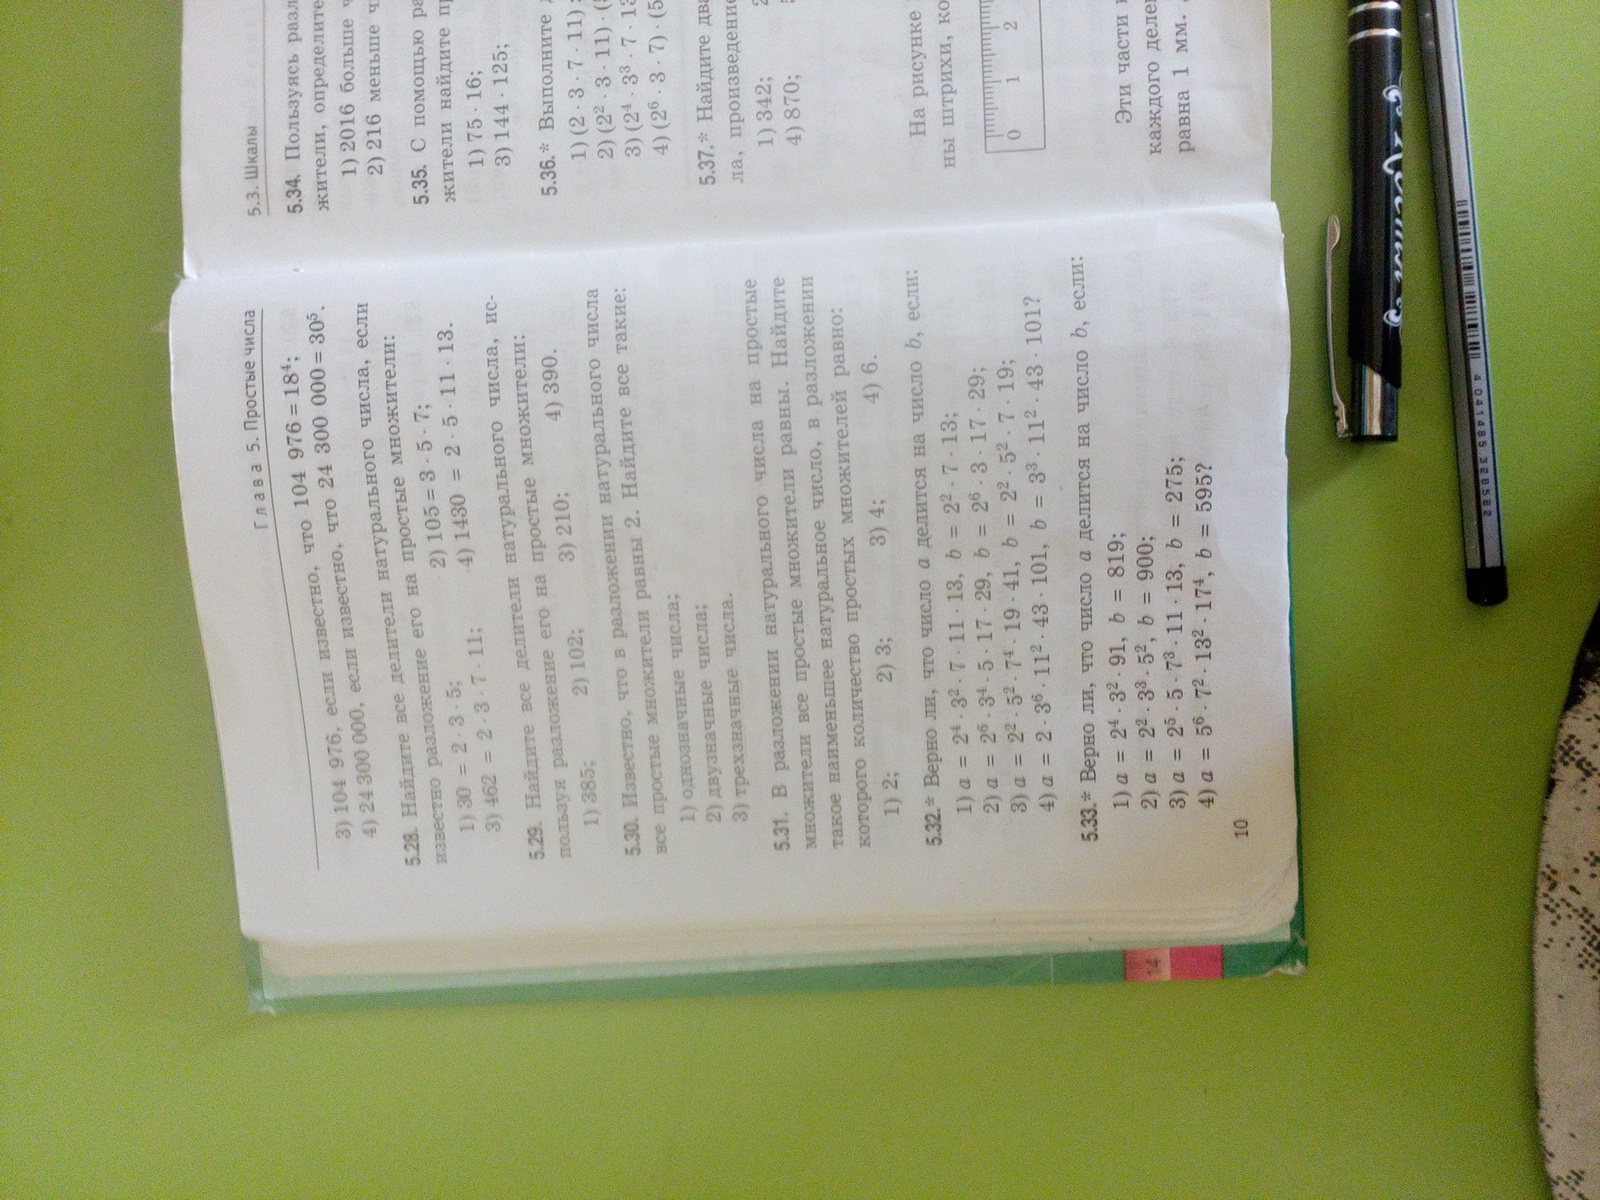 Глава 5. Простые числа
3) 104 976, если известно, что 104 976 = 18⁴;
4) 24 300 000, если известно, что 24 300 000 = 30⁵.
5.28. Найдите все делители натурального числа, если
известно разложение его на простые множители:
1) 30 = 2 · 3 · 5; 2) 105 = 3 · 5 · 7;
3) 462 = 2 · 3 · 7 · 11; 4) 1430 = 2 · 5 · 11 · 13.
5.29. Найдите все делители натурального числа, ис-
пользуя разложение его на простые множители:
1) 385; 2) 102; 3) 210; 4) 390.
5.30. Известно, что в разложении натурального числа
все простые множители равны 2. Найдите все такие:
1) однозначные числа;
2) двузначные числа;
3) трехзначные числа.
5.31. В разложении натурального числа на простые
множители все простые множители равны. Найдите
такое наименьшее натуральное число, в разложении
которого количество простых множителей равно:
1) 2; 2) 3; 3) 4; 4) 6.
5.32.* Верно ли, что число a делится на число b, если:
1) a = 2⁴ · 3² · 7 · 11 · 13, b = 2² · 7 · 13;
2) a = 2⁶ · 3⁴ · 5 · 17 · 29, b = 2⁶ · 3 · 17 · 29;
3) a = 2² · 5² · 7⁴ · 19 · 41, b = 2² · 5² · 7 · 19;
4) a = 2 · 3⁶ · 11² · 43 · 101, b = 3³ · 11² · 43 · 101?
5.33.* Верно ли, что число a делится на число b, если:
1) a = 2⁴ · 3² · 91, b = 819;
2) a = 2² · 3³ · 5², b = 900;
3) a = 2⁵ · 5 · 7³ · 11 · 13, b = 275;
4) a = 5⁶ · 7² · 13² · 17⁴, b = 595?
10
5.3. Шкалы
5.34. Пользуясь
жители,
1) 2016 больше
2) 216 меньше
5.35. С помощью
жители найдите
1) 75 · 16;
3) 144 · 125;
5.36.* Выполните
1) (2 · 3 · 7 · 11)
2) (2² · 3 · 11) ·
3) (2⁴ · 3³ · 7 · 13
4) (2⁶ · 3 · 7) · (5
5.37.* Найдите
ла, произведение
1) 342;
4) 870;
На рисунке
ны штрихи,
0 1 2
Эти части
каждого
равна 1 мм.
14
4 041485 326582